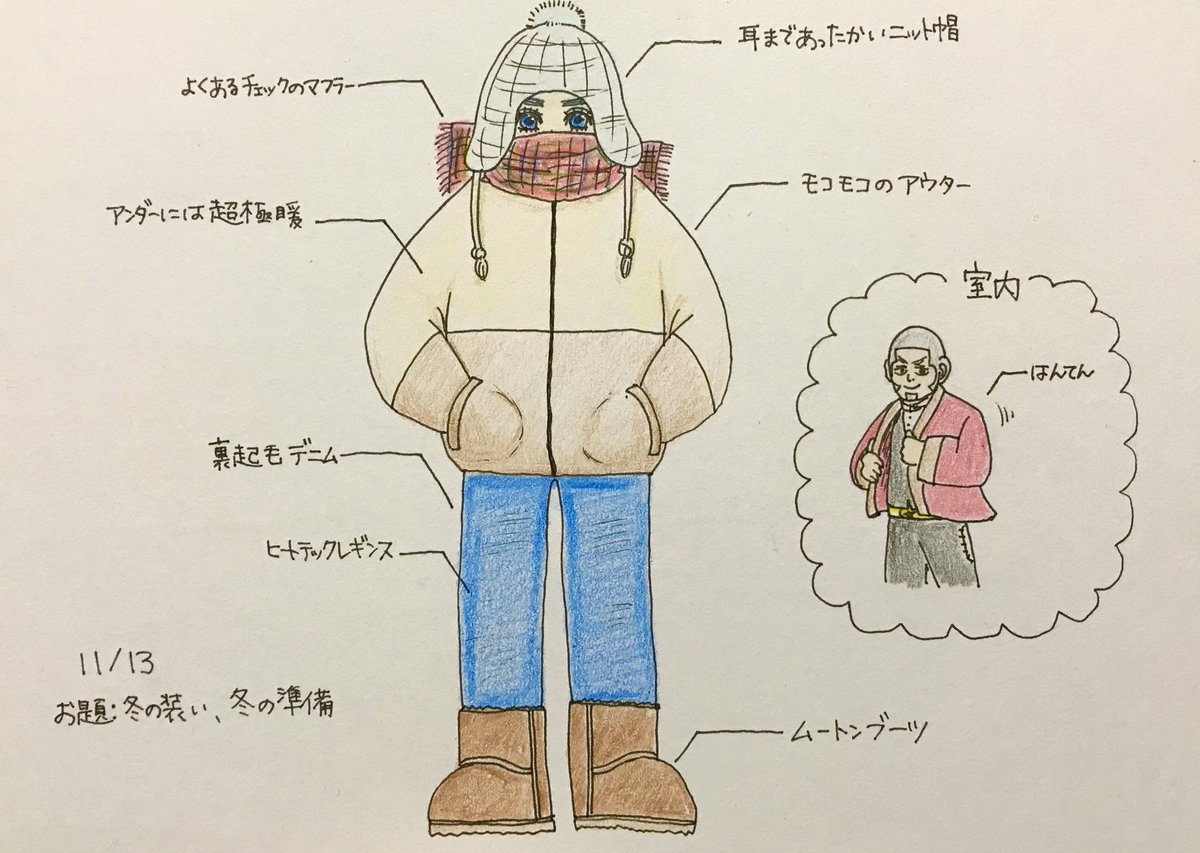 耳まであったかいニット帽
よくあるチェックのマフラー
モコモコのアウター
アンダーには超極暖
室内
はんてん
裏起毛デニム
ヒートテックレギンス
11/13
お題:冬の装い、冬の準備
ムートンブーツ